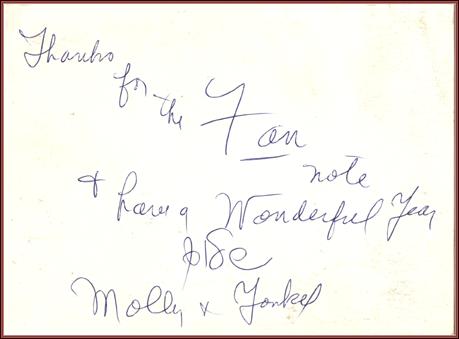 Thanks
for
the Fan
note
+ have a Wonderful Year
Molly + Yonkel